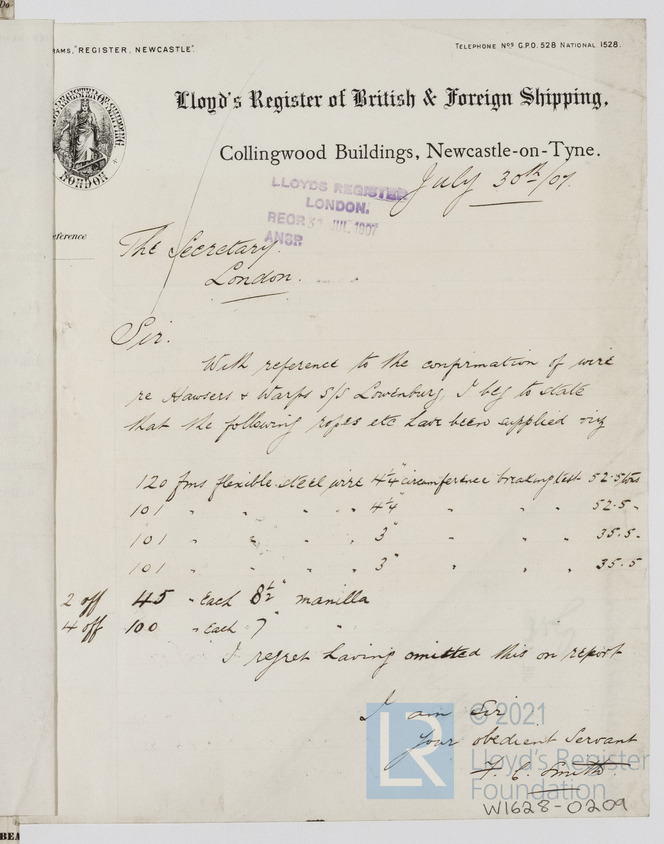 RAMS, "REGISTER, NEWCASTLE".
TELEPHONE Nos G.P.O. 528 NATIONAL 1528.
Lloyd's Register of British & Foreign Shipping,
Collingwood Buildings, Newcastle-on-Tyne.
LONDON
July 30th/07.
LLOYDS REGISTER
LONDON.
RECR 31 JUL 1907
ANSR
eference
The Secretary.
London.
Sir.
With reference to the confirmation of wire
re Hawsers & Warps S/S Lowenburg, I beg to state
that the following ropes etc have been supplied viz
120 fms flexible steel wire 4¼" circumference breaking test 52.5 tons
101 " " " " 4¼" " " " 52.5 "
101 " " " " 3" " " " 35.5 "
101 " " " " 3" " " " 35.5
2 off 45 " Each 8½" manilla
4 off 100 " Each 7" "
I regret having omitted this on report
I am Sir
Your obedient Servant
F. C. Smith.
LR
© 2021
Lloyd's Register
Foundation
W1628-0209
BEA
Do